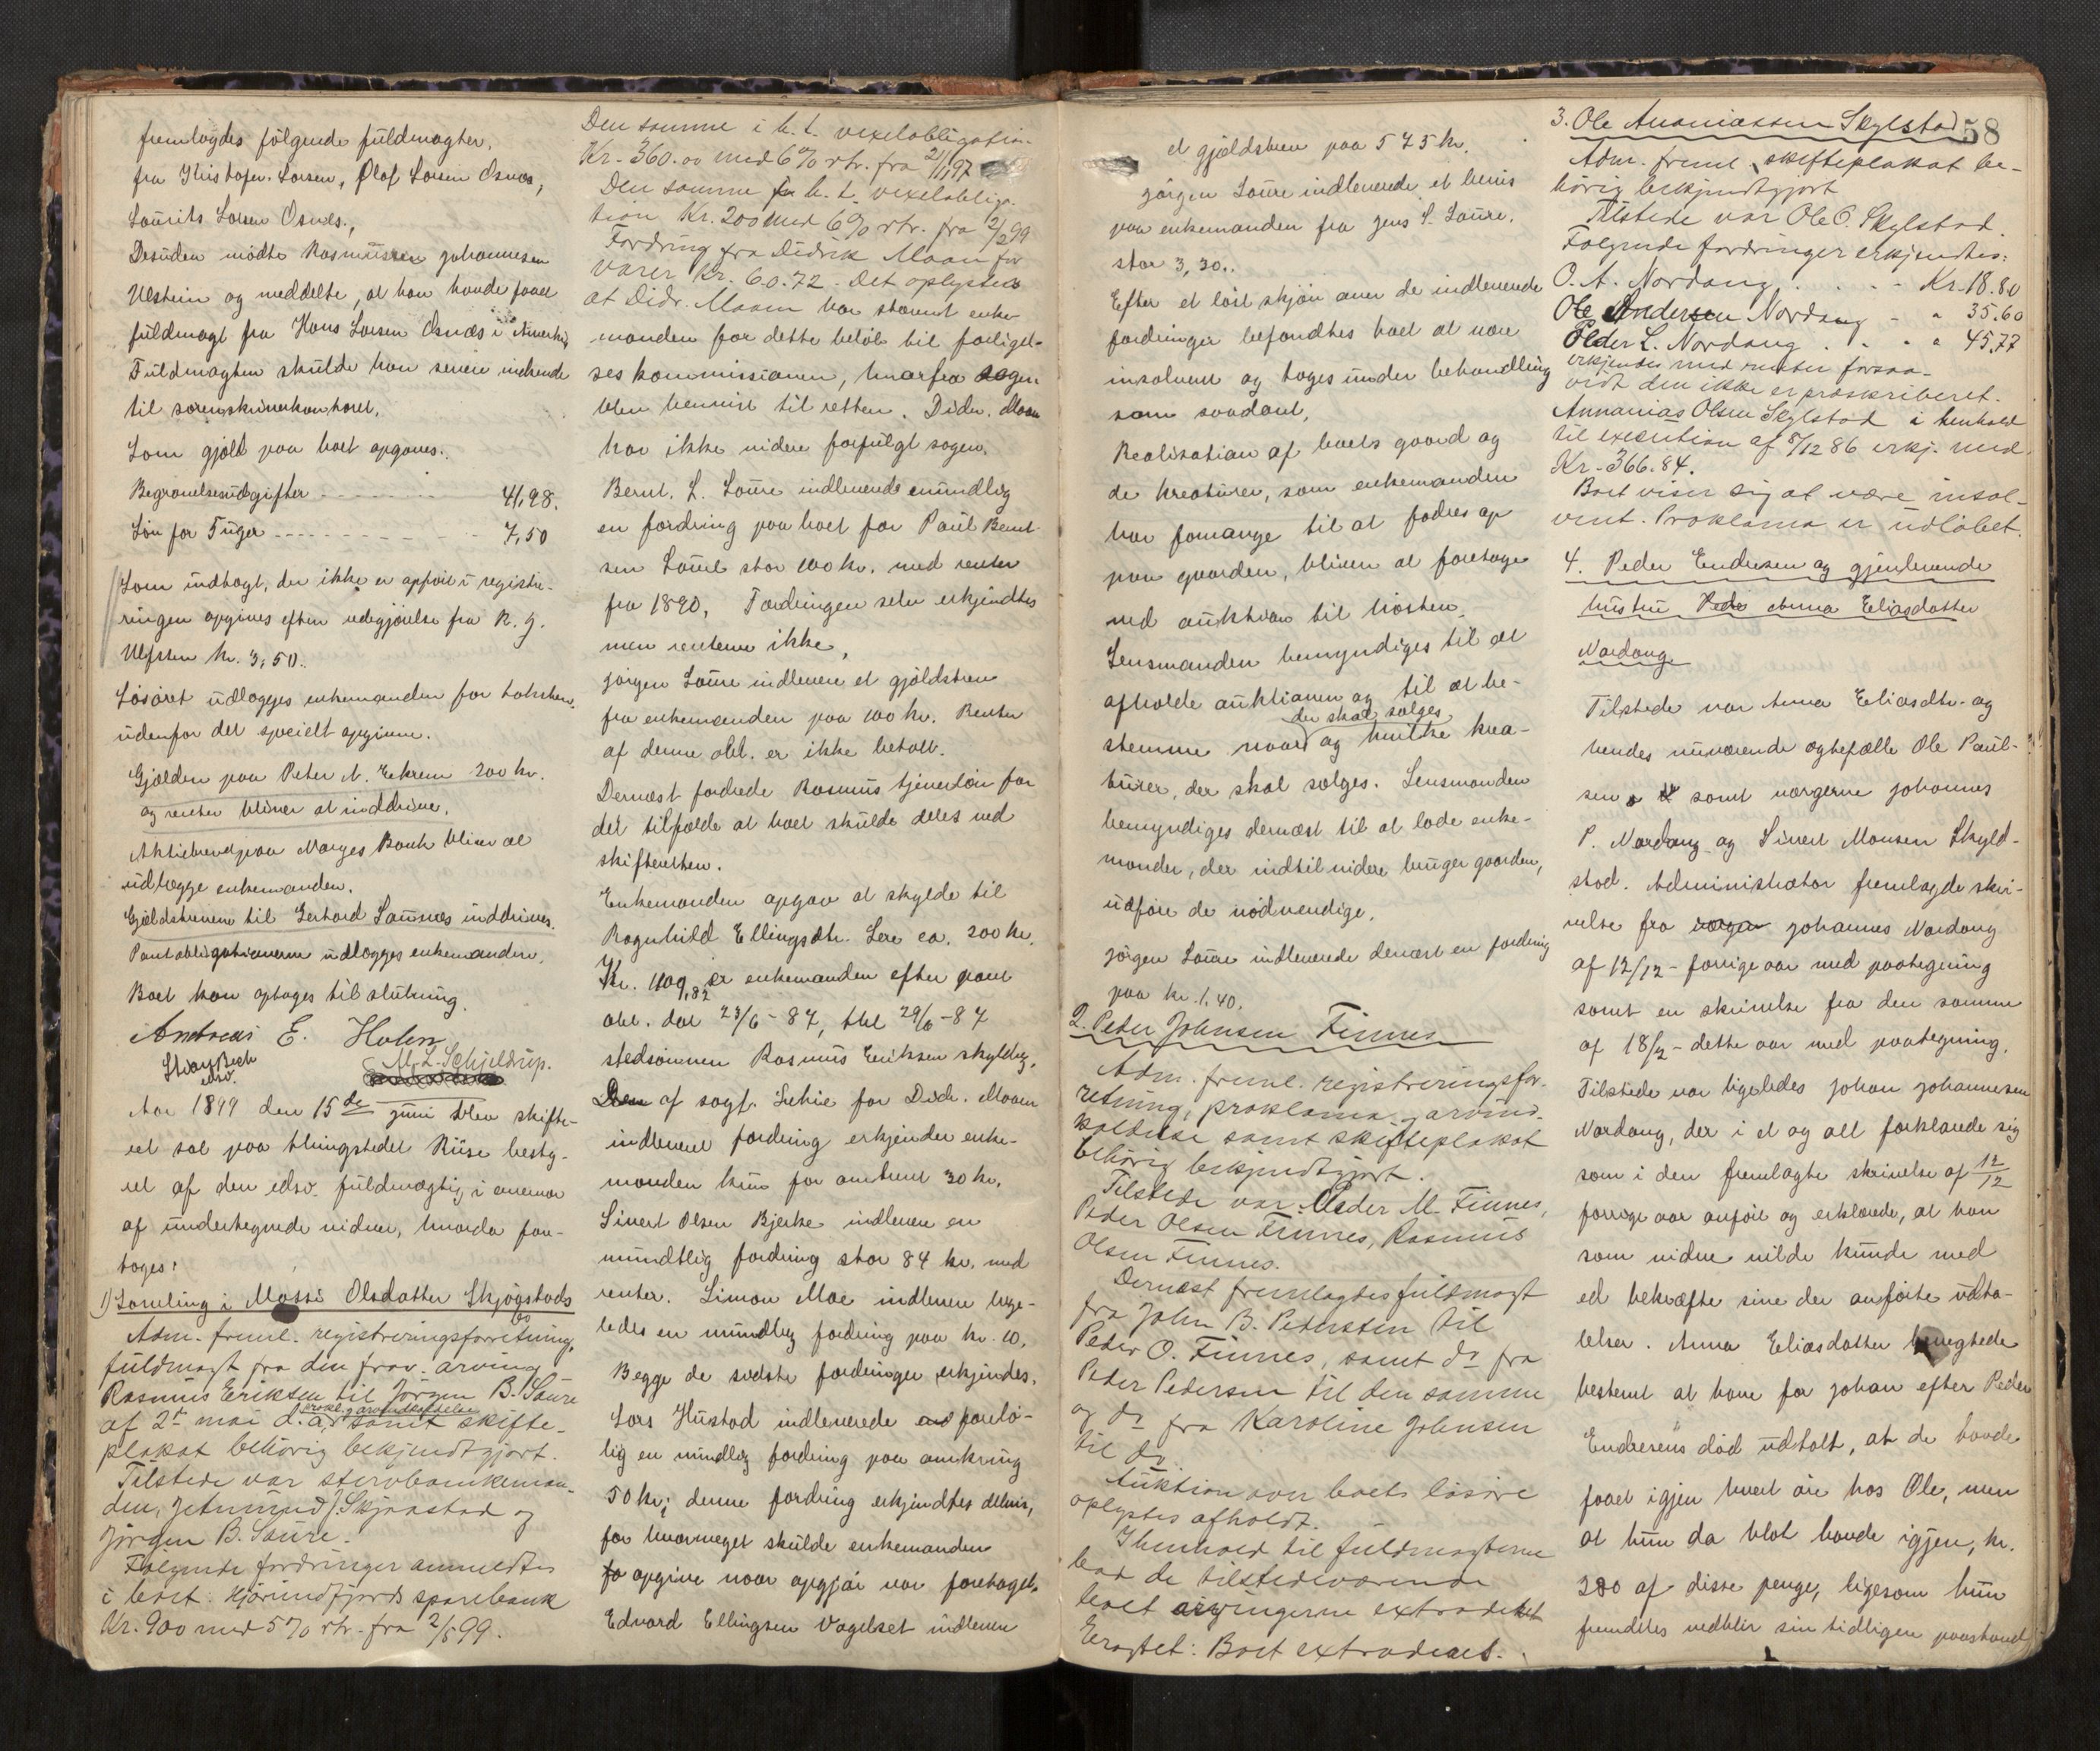 fremlagdes følgende fuldmagter,
fra Kristofer Larsen, Olaf Larsen Osnes,
Laurits Larsen Osnes.,
Desuden mødte Rasmus Johannesen
Ulstein og meddelte, at han havde faaet
fuldmagt fra Hans Larsen Osnæs i Amerika,
Fuldmagten skulde han senere indsende
til sorenskriverkontoret.
Som gjæld paa boet opgaves:
Begravelsesudgifter - - - - - 41,98.
Løn for Tuger - - - - - - - 7,50
Som indtægt, der ikke er opført i registre-
ringen opgives efter redegjørelse fra R. J.
Ulfsten kr. 3,50.
Løsøret udlægges enkemanden for taksten,
udenfor det specielt opgivne.
Gjælden paa Peter N. Eekrem 200 kr.
og renter bliver at inddrive.
Aktiebrevet paa Norges Bank bliver at
udlægge enkemanden.
Gjældsbrevene til Gerhard Saunæs inddrives.
Pantobligationerne udlægges enkemanden.
Boet kan optages til slutning.
Andreas E. Holen
M. L. Schjeldrup.
edsv.
Aar 1899 den 15de juni blev skifte-
ret sat paa thingstedet Riise besty-
ret af den edsv. fuldmægtig i nærvær
af undertegnede vidner, hvorda fore-
toges:
1) Samling i Massi Olsdatter Skjøgstads bo
Adm. freml. registreringsforretning,
fuldmagt fra den frav. arving
Rasmus Eriksen til Jørgen B. Saure
af 2den mai d.a., prokl. & arveindkaldelse samt skifte-
plakat behørig bekjendtgjort.
Tilstede var stervboenkeman-
den, Jetmund J. Skjaastad og
Jørgen B. Saure.
Følgende fordringer anmeldtes
i boet: Hjørundfjords sparebank
Kr. 900 med 5% rtr. fra 2/5 99.
Den samme i h. t. vexelobligation
Kr. 360.00 med 6% rtr. fra 21/11 97
Den samme i h. t. vexelobliga-
tion Kr. 200 med 6% rtr. fra 2/2 99
Fordring fra Didrik Maan for
varer Kr. 60.72. Det oplystes
at Didr. Maan har stævnt enke-
manden for dette beløb til forligel-
ses kommissionen, hvorfra sagen
blev henvist til retten. Didr. Maan
har ikke videre forfulgt sagen.
Bernt. L. Saure indleverede mundtlig
en fordring paa boet for Paul Bernt-
sen Saure stor 100 kr. med renter
fra 1890. Fordringen selv erkjendtes
men renterne ikke.
Jørgen Saure indleverer et gjældsbrev
fra enkemanden paa 100 kr. Renter
af denne obl. er ikke betalt.
Dernæst fordrede Rasmus tjenerløn for
det tilfælde at boet skulde deles ved
skifteretten.
Enkemanden opgav at skylde til
Ragnhild Ellingsdtr. Lere ca. 200 kr.
Kr. 1109,82 er enkemanden efter pant
obl. dat 23/6-87, tbl 29/6-87
stedsønnen Rasmus Eriksen skyldig.
Den af sagf. Lehie for Didr. Maan
indleveret fordring erkjender enke-
manden kun for omtrent 30 kr.
Sivert Olsen Bjerke indleverer en
mundtlig fordring stor 84 kr. med
renter. Simon Moe indleverer lige-
ledes en mundtlig fordring paa kr. 10.
Begge de sidste fordringer erkjendes.
Lars Hustad indleverede forelø-
big en mundtlig fordring paa omkring
50 kr; denne fordring erkjendtes delvis,
for hvormeget skulde enkemanden
opgive naar opgjør var foretaget.
Edvard Ellingsen Vagelset indleverer
et gjældsbrev paa 575 kr.
Jørgen Saure indleverede et bevis
paa enkemanden fra Jens S. Saure.
stor 3,30.
Efter et løst skjøn over de indleverede
fordringer befandtes boet at være
insolvent og toges under behandling
som saadant,
Realisation af boets gaard og
de kreaturer, som enkemanden
har formange til at fødes op
paa gaarden, bliver at foretage
ved auktion til høsten.
Lensmanden bemyndiges til at
afholde auktionen og til at be-
stemme naar der skal sælges og hvilke krea-
turer, der skal sælges. Lensmanden
bemyndiges dernæst til at lade enke-
manden, der indtil videre bruger gaarden,
udføre de nødvendige.
Jørgen Saure indleverede dernæst en fordring
paa kr. 1,40.
2. Peder Johnsen Finnes
Adm. freml. registreringsfor-
retning, proklama & arveind-
kaldelse samt skifteplakat
behørig bekjendtgjort.
Tilstede var: Peder M. Finnes,
Peder Olsen Finnes, Rasmus
Olsen Finnes.
Dernæst fremlagdes fuldmagt
fra John B. Petersten til
Peder O. Finnes, samt do fra
Peder Pedersen til den samme
og do fra Karoline Johnsen
til do.
Auktion over boets løsøre
oplystes afholdt.
I henhold til fuldmagterne
bad de tilstedeværende
boet arvingerne extraderet
Eragtet: Boet extraderet.
58
3. Ole Ananiassen Skylstad
Adm. freml. skifteplakat be-
hørig bekjendtgjort
Tilstede var Ole O. Skylstad.
Følgende fordringer erkjendtes:
O. A. Nordang . . . - Kr. 18.80
Ole Andersen Nordang - " 35.60
Peder L. Nordang . . . " 45,77
erkjendes med renter forsaa-
vidt den ikke er præskriberet.
Annanias Olsen Skylstad i henhold
til execution af 8/12 86 erkj. med
Kr. 366.84.
Boet viser sig at være insol-
vent. Proklama er udløbet.
4. Peder Endresen og gjenlevende
hustru Anna Eliasdatter
Nordang
Tilstede var Anna Eliasdtr. og
hendes nuværende ægtefælle Ole Paul-
sen samt værgerne Johannes
P. Nordang og Sivert Monsen Skyld-
stad. Administrator fremlagde skri-
velse fra Johannes Nordang
af 12/12 - forrige aar med paategning
samt en skrivelse fra den samme
af 18/2 - dette aar med paategning.
Tilstede var ligeledes Johan Johannesen
Nordang, der i et og alt forklarede sig
som i den fremlagte skrivelse af 12/12
forrige aar anført og erklærede, at han
som vidne vilde kunde med
ed bekræfte sine der anførte udta-
lelser. Anna Eliasdatter benegtede
bestemt at have for Johan efter Peder
Endresens død udtalt, at de havde
faaet igjen hvert øre hos Ole, men
at hun da blot havde igjen, kr.
280 af disse penge, ligesom hun
fremdeles vedblir sin tidligere paastand